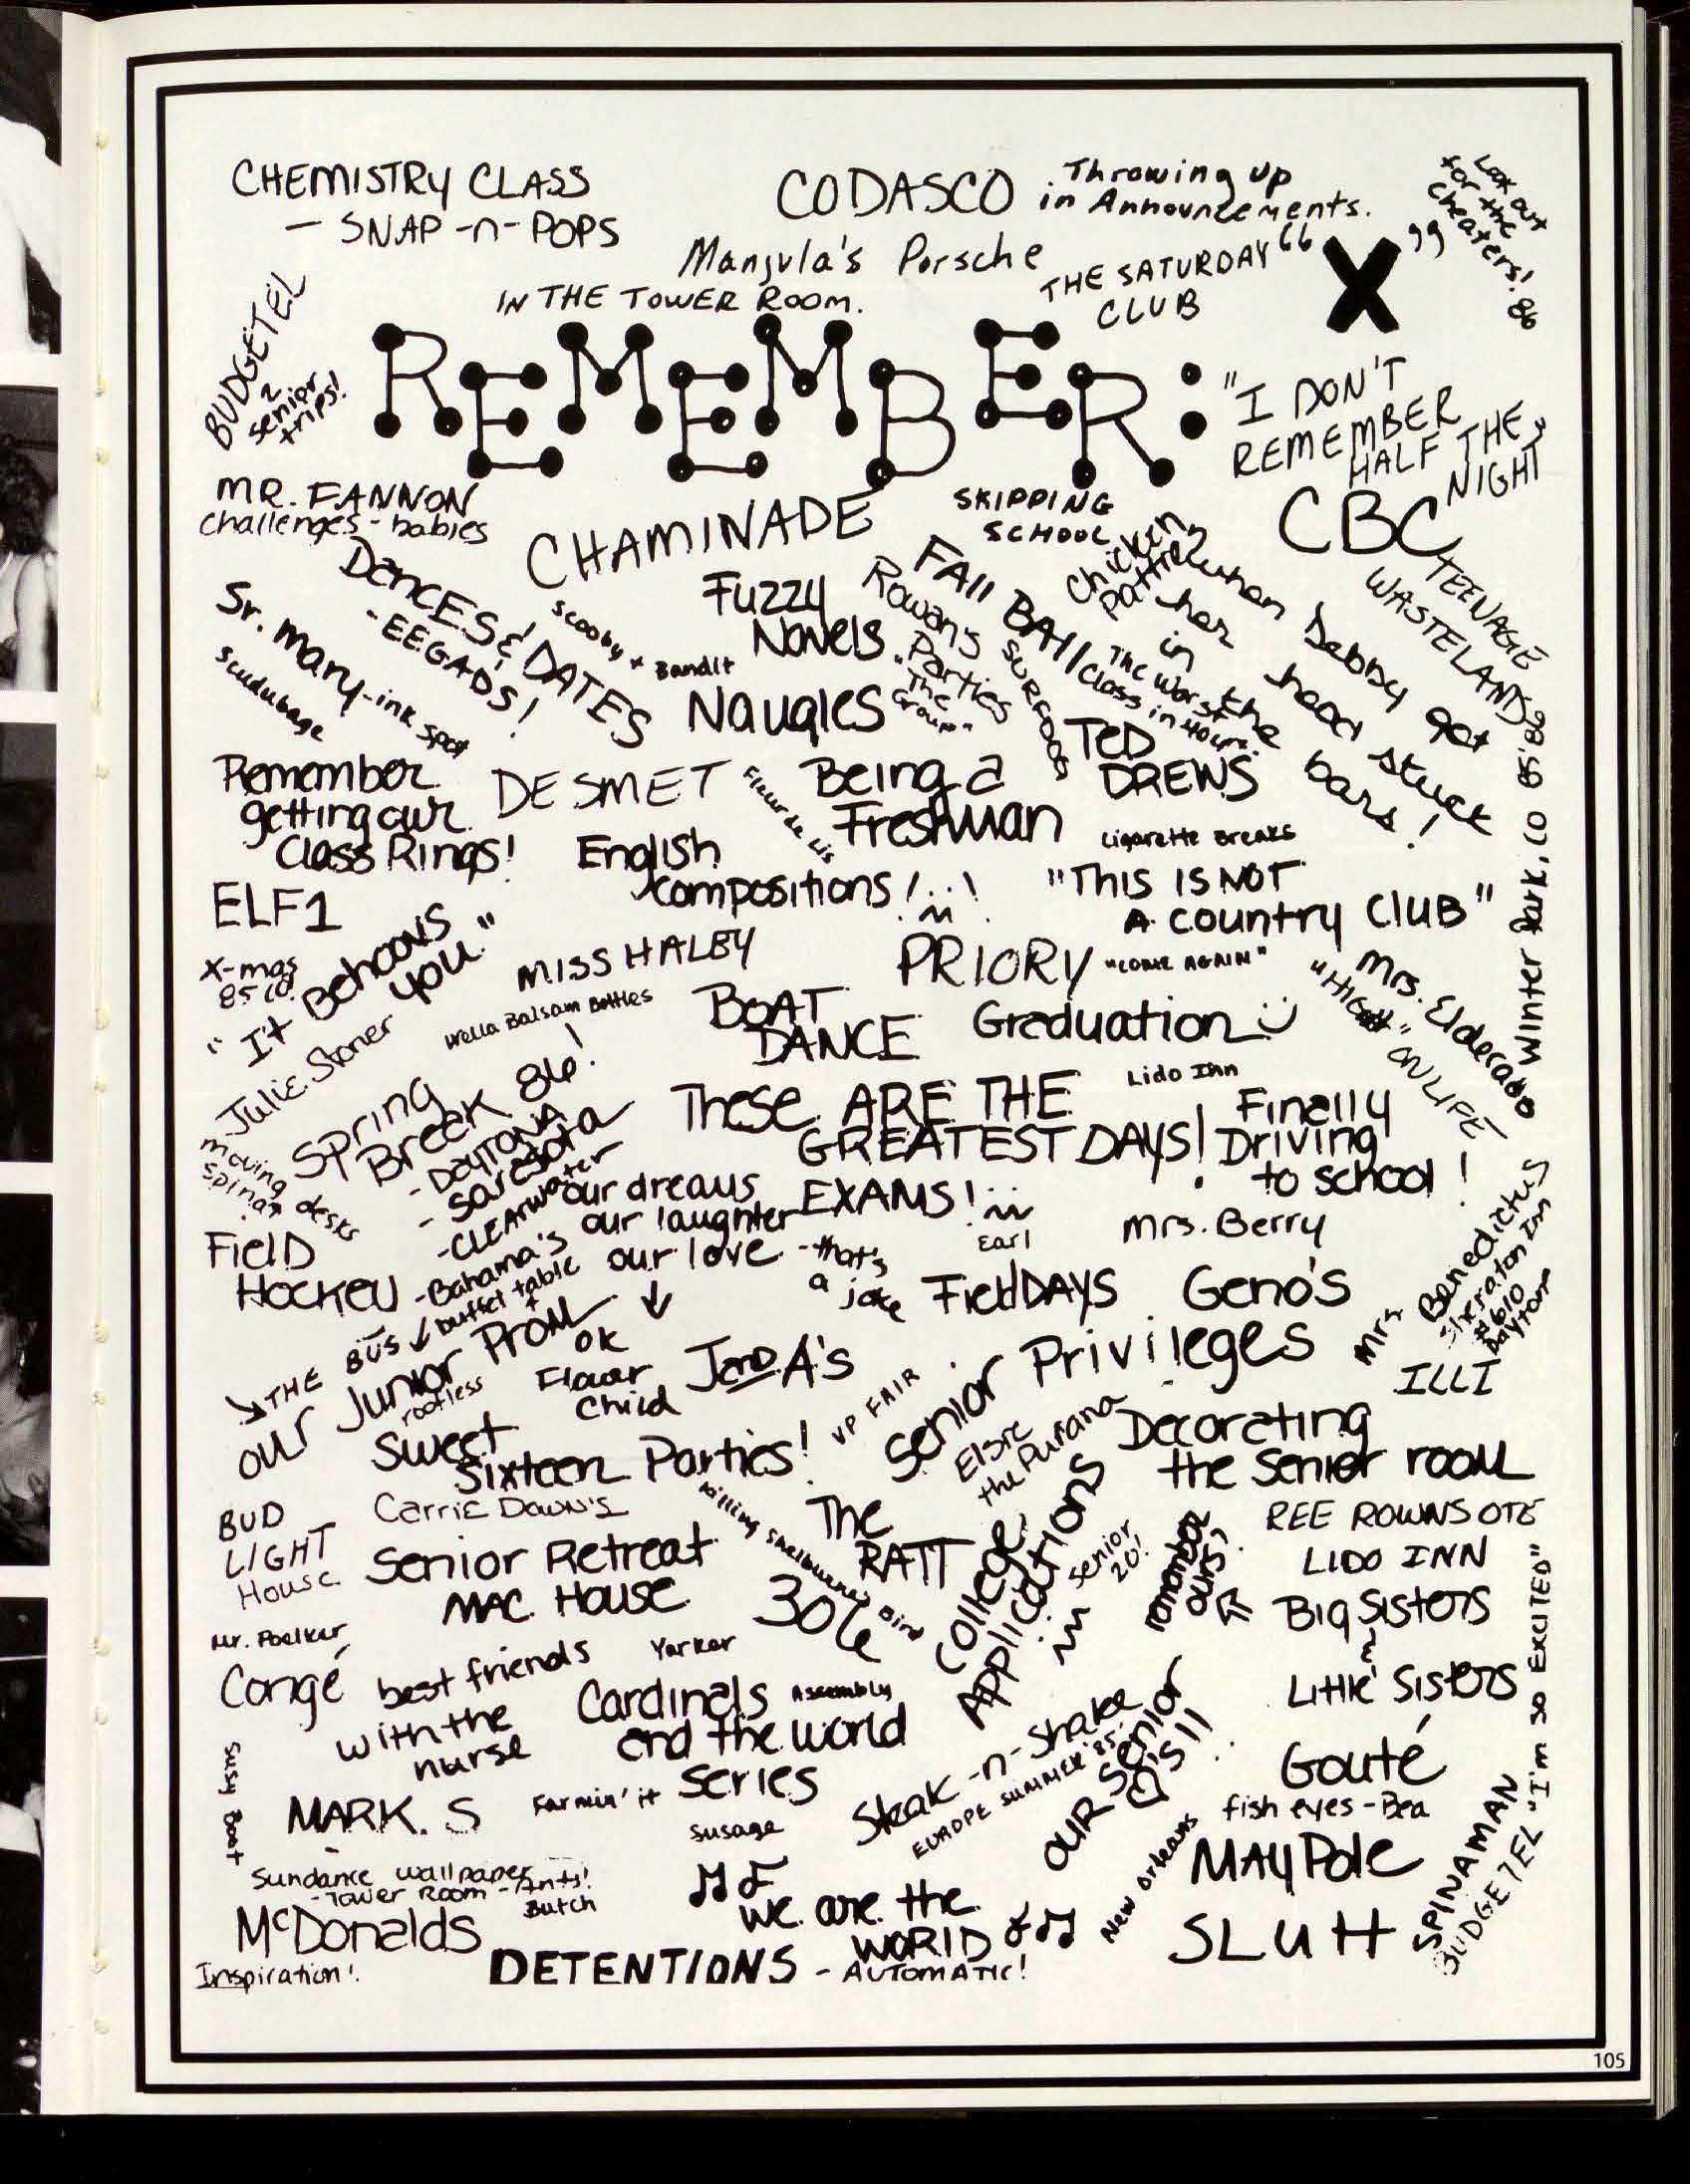 CHEMISTRY CLASS
- SNAP -n- POPS
CODASCO
Throwing up
in Announcements.
Look out
for the
cheaters! 86
Manjula's Porsche
IN THE TOWER ROOM.
THE SATURDAY
CLUB
"X"
BUDGETEL
2
senior
trips!
REMEMBER:
"I DON'T
REMEMBER
HALF THE
NIGHT"
MR. FANNON
challenges - babies
CHAMINADE
SKIPPING
SCHOOL
CBC
TEENAGE
WASTELAND
DANCES & DATES
- EEGADS!
Scooby + Bandit
Fuzzy
Navels
Rowan's
Parties
"The
Group"
FAll BAll
chicken
pattie
when Debby got
her head stuck
in the bars!
Sr. Mary - ink spot
scudubage
Naugles
SURFDOG
The Worst
Class in 4 Hours.
TED
DREWS
Remember
getting our
Class Rings!
DESMET
Fleur de lis
Being a
Freshman
Cigarette Breaks
Winter Park, CO 85'86
English
compositions!
"THIS IS NOT
A country CluB"
ELF1
X-mas
85
"It Behooves
you."
MISS HALBY
PRIORY
"COME AGAIN"
Mrs. Elderado
"HIGH" ON LIFE
Wella Balsam Bottles
BOAT
DANCE
Graduation
Julie Stoner
Lido Inn
Spring
Break 86!
- DAYTONA
- Sarasota
- CLEARWATER
- Bahama's
buffet table
These ARE THE
GREATEST DAYS!
Finally
Driving
to school!
moving desks
spinan
our dreams
our laughter
our love
- that's
a joke
EXAMS!
Earl
Mrs. Berry
Mrs Benedictus
Sheraton Inn
#610
Dayton
FielD
HOCKEY
FieldDAYS
Geno's
THE BUS
our Junior Prom
roofless
OK
Flower
Child
J and A's
VP FAIR
Senior Privileges
ILLI
Sweet
Sixteen Parties!
Elsie
the Purana
Decorating
the Senior room
BUD
LIGHT
House
Carrie Dawn's
Killing Shelburne's Bird
The
RATT
College
Applications
Senior
20!
remember
ours?
REE ROWNS OTE
LIDO INN
Senior Retreat
MAC HOUSE
30%
Big Sisters
~
Little Sisters
"I'm so EXCITED"
Mr. Poelker
Congé
best friends
with the
nurse
Yarker
Cardinals
Assembly
and the world
series
Steak -n- Shake
EUROPE SUMMER '85'
OUR Senior
Q's!!
Gouté
fish eyes - Bea
Susy Boat
MARK. S
Farmin' it
susage
New Orleans
MAYPOle
SPINAMAN
BUDGETEL
Sundance wallpaper
- Tower Room - Ants!
Butch
McDonalds
We are the
WORLD
SLUH
Inspiration!
DETENTIONS - AUTOMATIC!
105